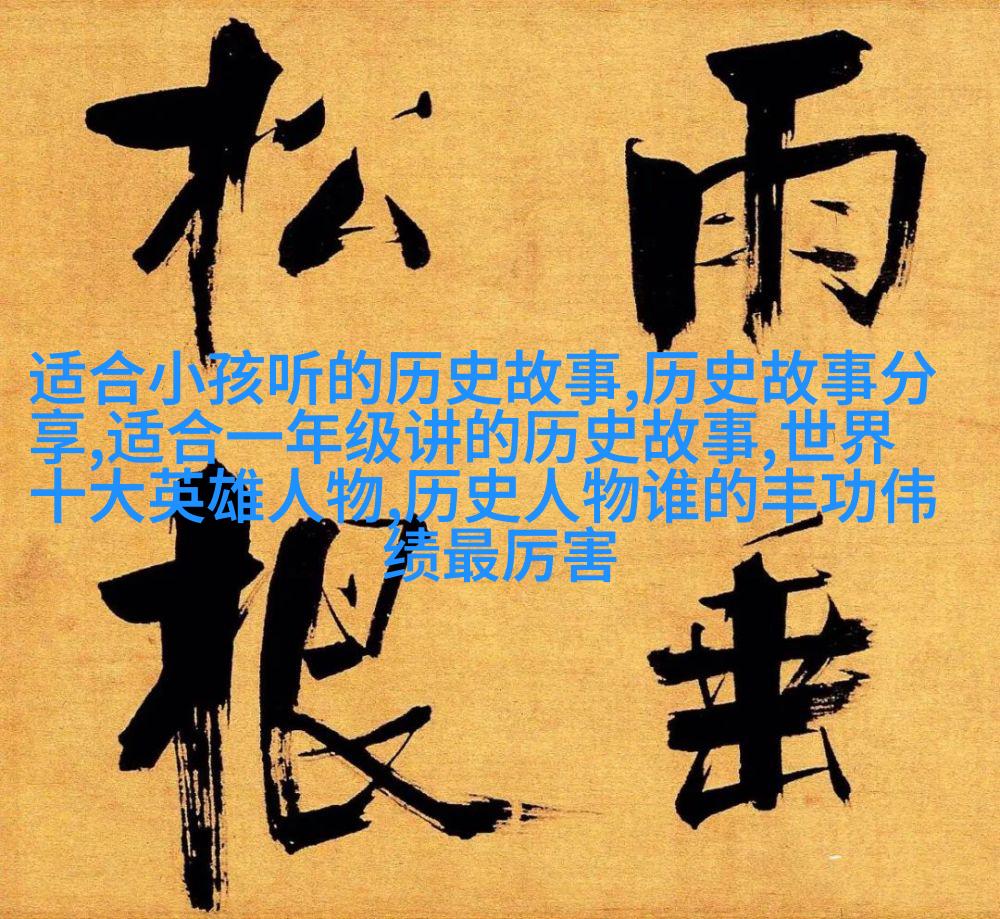 雨垂
松根
适合小孩听的历史故事,历史故事分
享,适合一年级讲的历史故事,世界
十大英雄人物,历史人物谁的丰功伟
绩最厉害